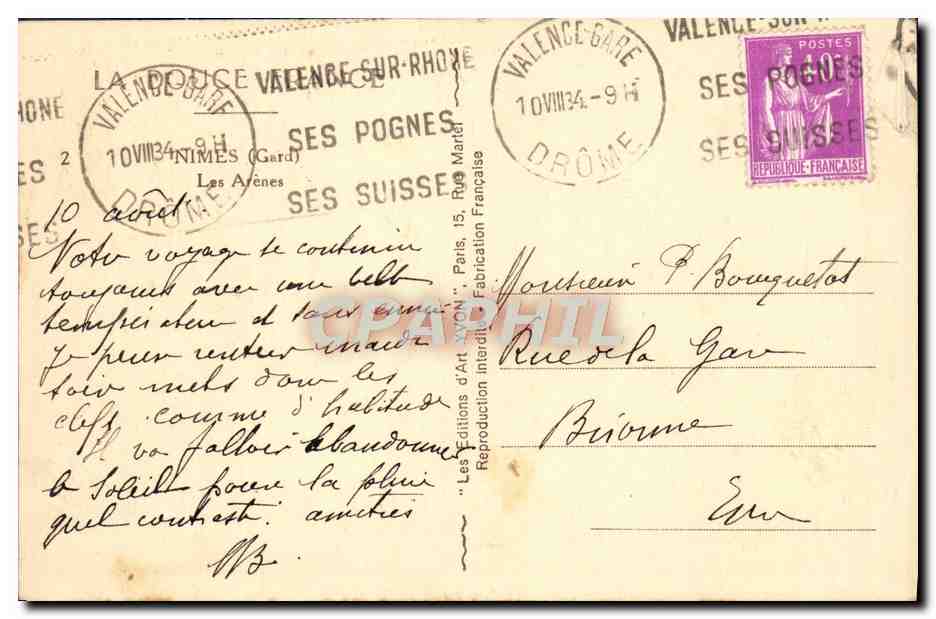 LA DOUCE FRANCE
VALENCE-SUR-RHONE
SES POGNES
SES SUISSES
VALENCE-GARE
10 VIII 34 - 9 H
DRÔME
2
NIMES (Gard)
Les Arènes
RHONE
ES
SES
VALENCE-GARE
10 VIII 34 - 9 H
DRÔME
VALENCE-SUR-R
SES POGNES
SES SUISSES
POSTES
40c
REPUBLIQUE-FRANÇAISE
10 août
Notre voyage se continue
toujours avec une belle
température et sans ennui
Je pense rentrer mardi
soir mets donc les
clefs comme d'habitude
Il va falloir abandonner
le soleil pour la pluie
quel contraste. amitiés
"Les Editions d'Art YVON", Paris, 15, Rue Martel
Reproduction Interdite - Fabrication Française
Monsieur P. Bouquetot
Rue de la Gare
Brionne
Eure
CPAPHIL